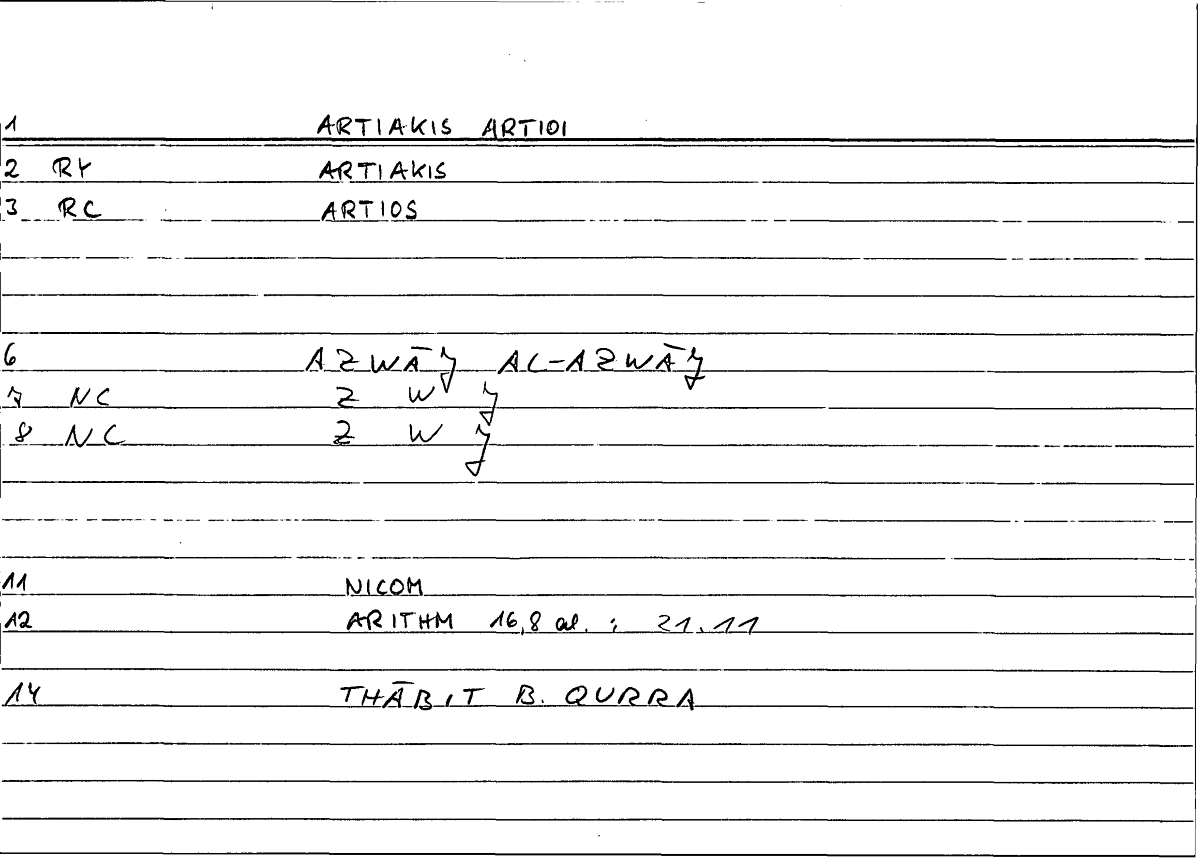 1 ARTIAKIS ARTIOI
2 RY ARTIAKIS
3 RC ARTIOS
6 AZWĀǧ AL-AZWĀǧ
7 NC Z W ǧ
8 NC Z W ǧ
11 NICOM
12 ARITHM 16,8 al. ; 21.11
14 THĀBIT B. QURRA